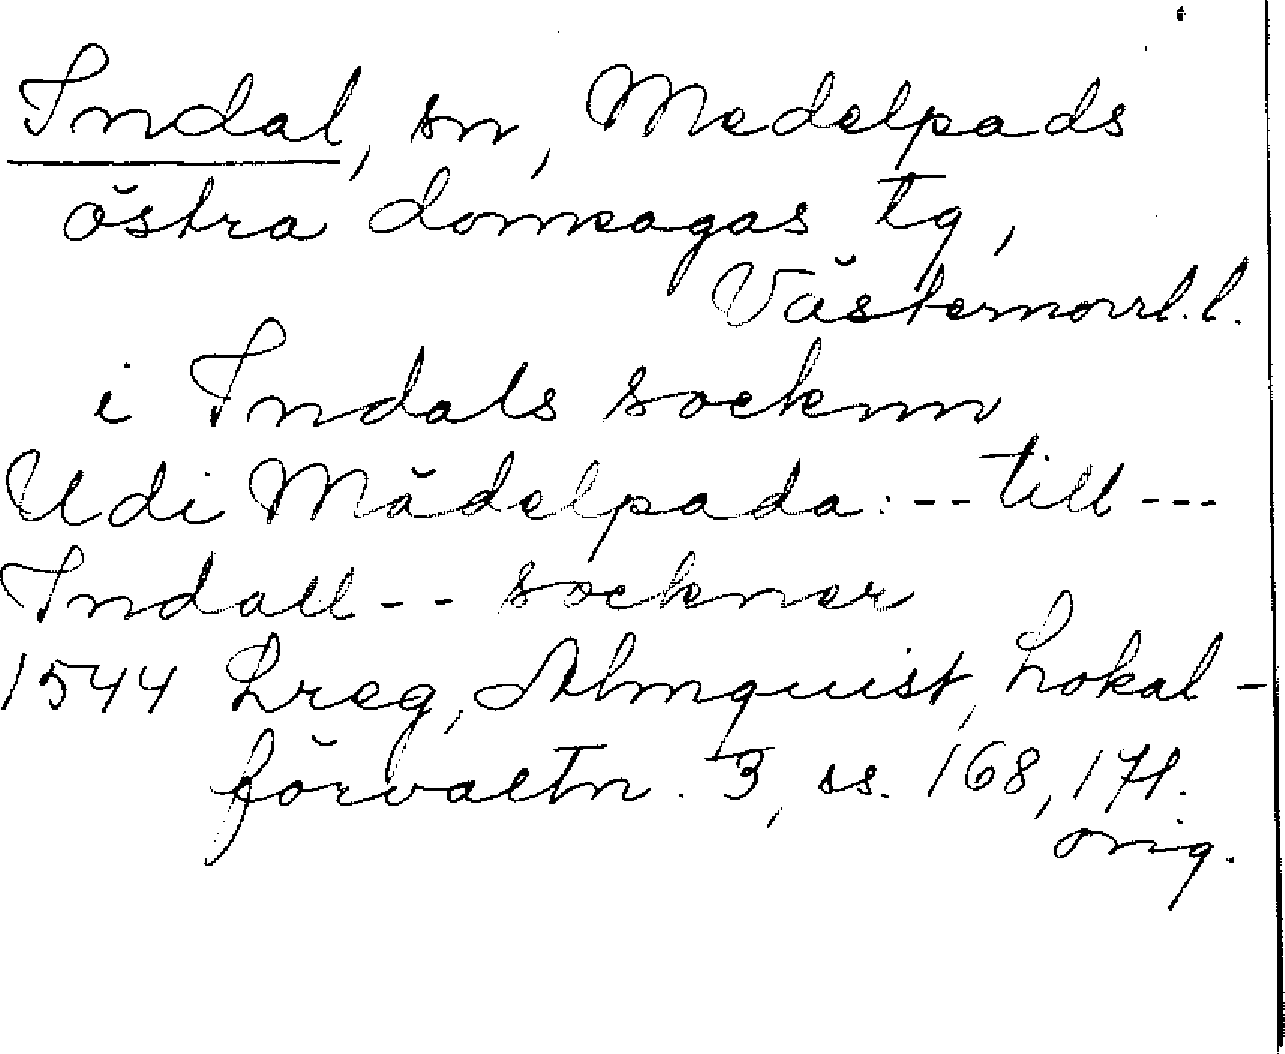 Indal, sn, Medelpads
östra domsagas tg,
Västernorrl. l.
i Indals socknn
Udi Mädelpada: -- till ---
Indall -- sockner
1544 Lreg, Almquist, Lokal-
förvaltn. 3, ss. 168, 171.
orig.